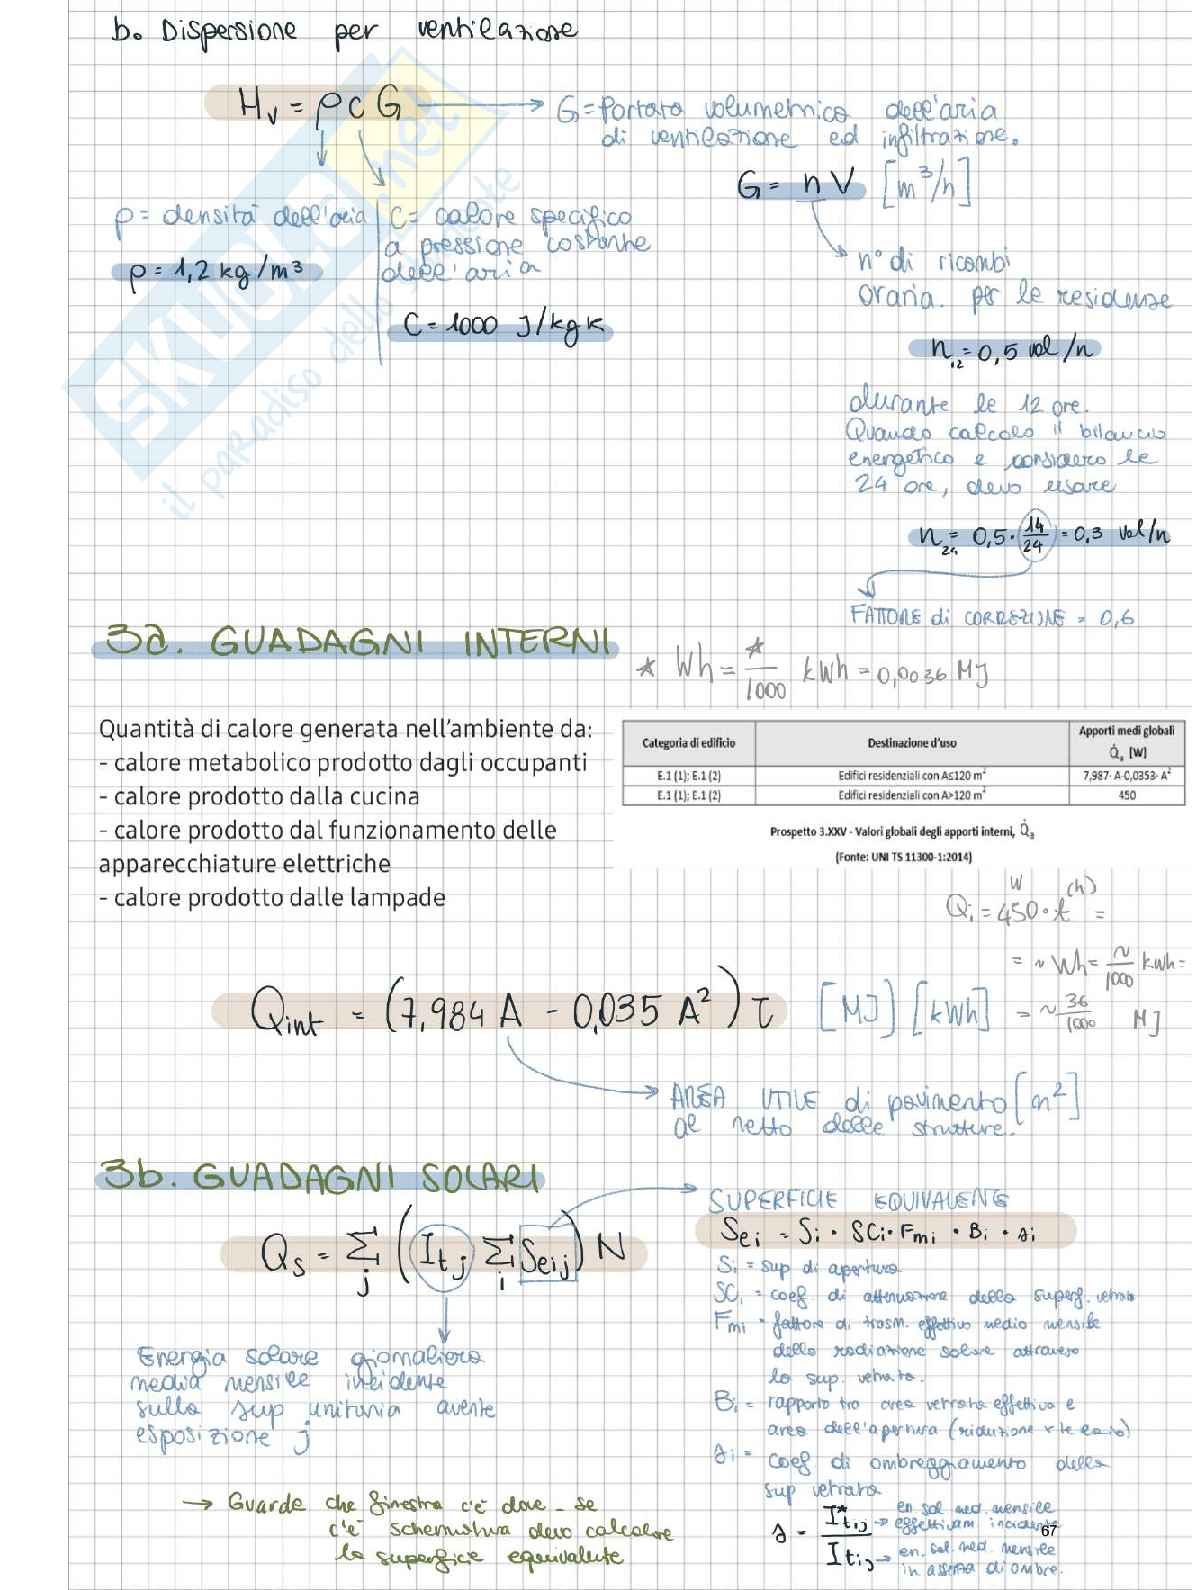 b. Dispersione per ventilazione
Hv = ρ c G
G = Portata volumetrica dell'aria
di ventilazione ed infiltrazione.
G = n V [m³/h]
ρ = densità dell'aria
ρ = 1,2 kg/m³
C = calore specifico
a pressione costante
dell'aria
C = 1000 J/kg K
n° di ricambi
oraria. per le residenze
n12 = 0,5 vol/h
durante le 12 ore.
Quando calcolo il bilancio
energetico e considero le
24 ore, devo usare
n24 = 0,5 · 14/24 = 0,3 vol/h
FATTORE di CORREZIONE = 0,6
SKUOLA.net
il paradiso dello studente
3a. GUADAGNI INTERNI
* Wh = */1000 kWh = 0,0036 MJ
Quantità di calore generata nell'ambiente da:
- calore metabolico prodotto dagli occupanti
- calore prodotto dalla cucina
- calore prodotto dal funzionamento delle
apparecchiature elettriche
- calore prodotto dalle lampade
Categoria di edificio Destinazione d'uso Apporti medi globali
[W]
E.1 (1); E.1 (2) Edifici residenziali con A≤120 m² 7,987· A-0,0353· A²
E.1 (1); E.1 (2) Edifici residenziali con A>120 m² 450
Prospetto 3.XXV - Valori globali degli apporti interni,
(Fonte: UNI TS 11300-1:2014)
W (h)
Qi = 450 · t =
= ~ Wh = ~/1000 kWh =
= ~ 36/1000 MJ
Qint = (7,984 A - 0,035 A²) τ [MJ] [kWh]
AREA UTILE di pavimento [m²]
al netto delle strutture.
3b. GUADAGNI SOLARI
Qs = Σj (Itj Σi Seij) N
Energia solare giornaliera
media mensile incidente
sulla sup unitaria avente
esposizione j
SUPERFICIE EQUIVALENTE
Sei = Si · SCi · Fmi · Bi · si
Si = sup di apertura
SCi = coef. di attenuazione della superf. vetrata
Fmi = fattore di trasm. effettivo medio mensile
della radiazione solare attraverso
la sup. vetrata.
Bi = rapporto tra area vetrata effettiva e
area dell'apertura (riduzione x telaio)
si = coef di ombreggiamento della
sup vetrata
s = I*tij / Itij
en. sol. med. mensile
effettivam incidente
en. sol. med. mensile
in assenza di ombre.
→ Guarde che finestra c'è dove - se
c'è schermatura devo calcolare
la superficie equivalente
67